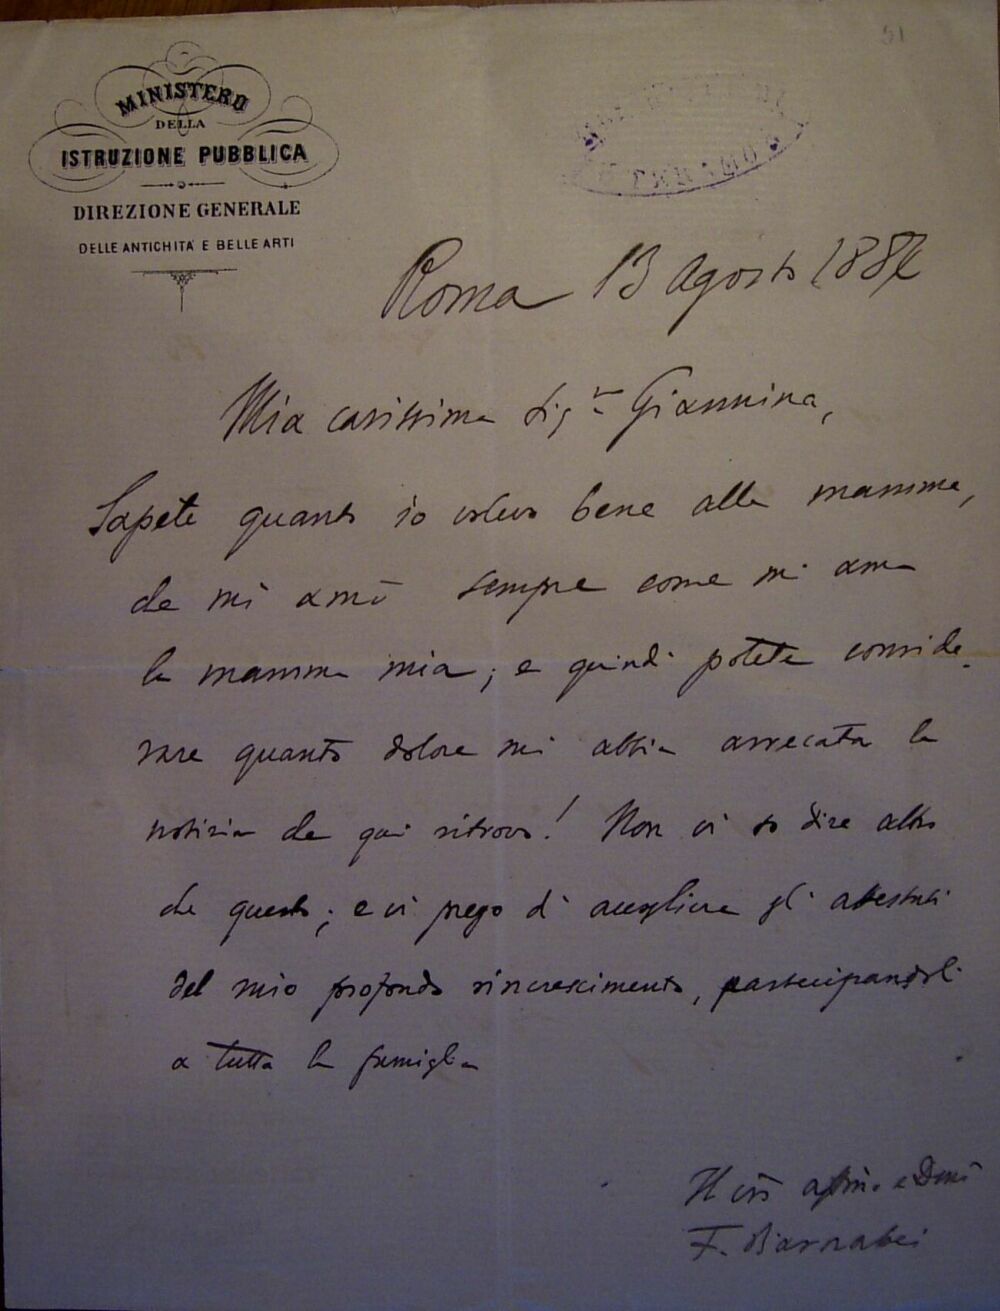 51
MINISTERO
DELLA
ISTRUZIONE PUBBLICA
DIREZIONE GENERALE
DELLE ANTICHITÀ E BELLE ARTI
TERAMO
Roma 13 Agosto 188
Mia carissima Sig.ra Giannina,
Sapete quanto io volevo bene alla mamma,
che mi amò sempre come mi ama
la mamma mia; e quindi potete conside-
rare quanto dolore mi abbia arrecata la
notizia che qui ritrovo! Non vi so dire altro
che questo; e vi prego di accogliere gli attestati
del mio profondo rincrescimento, partecipandoli
a tutta la famiglia
Il vo affmo e
F. Barnabei